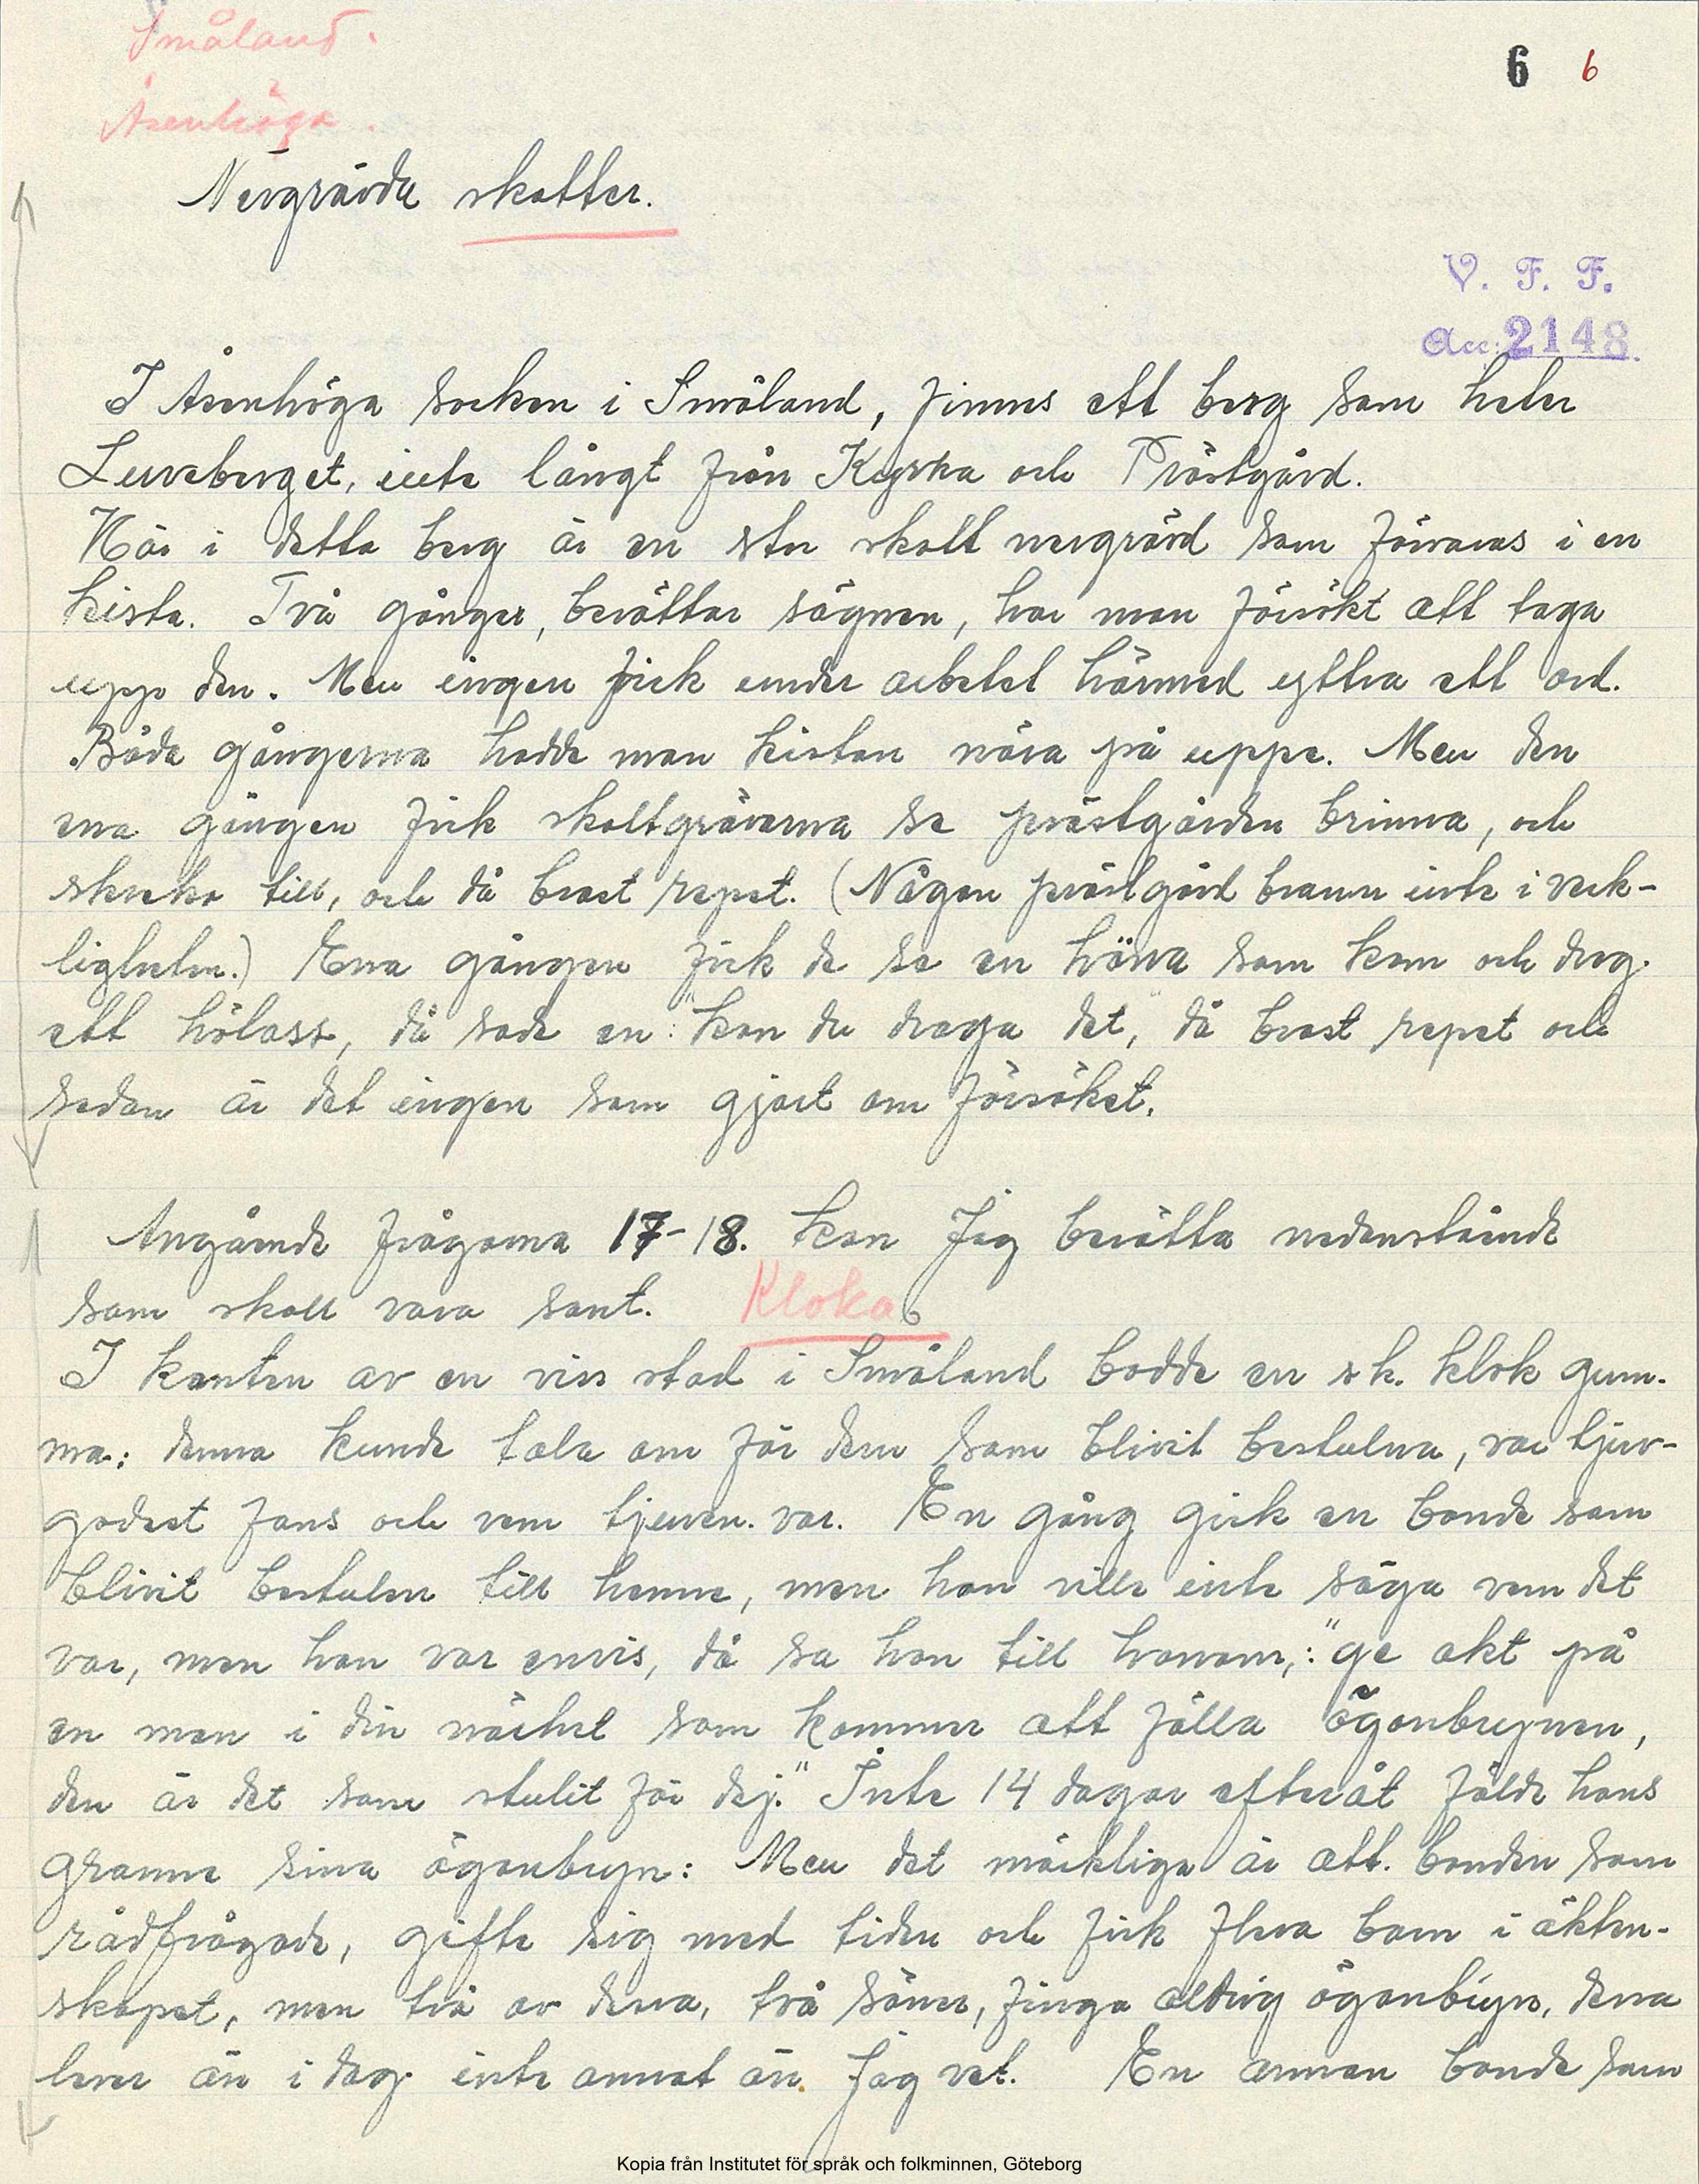 Småland.
6 6
Åsenhöga.
Nergrävda skatter.
V. F. F.
Acc: 2148.
I Åsenhöga socken i Småland, finns ett berg som heter
Luraberget, inte långt från Kyrka och Prästgård.
Här i detta berg är en stor skatt nergrävd som förvaras i en
kista. Två gånger, berättar sägnen, har man försökt att taga
upp den. Men ingen fick under arbetet härmed yttra ett ord.
Båda gångerna hade man kistan nära på uppe. Men den
ena gången fick skattgrävarna se prästgården brinna, och
skreko till, och då brast repet. (Någon prästgård brann inte i verk-
ligheten.) Ena gången fick de se en höna som kom och drog
ett hölass, då sade en: "kan du draga det", då brast repet och
sedan är det ingen som gjort om försöket.
Angående frågorna 17-18. kan Jag berätta nedenstående
som skall vara sant. Kloka
I kanten av en viss stad i Småland bodde en s k. klok gum-
ma: denna kunde tala om för dem som blivit bestulna, var tjuv-
godset fans och vem tjuven var. En gång gick en bonde som
blivit bestulen till henne, men hon ville inte säga vem det
var, men han var envis, då sa hon till honom,: "ge akt på
en man i din närhet som kommer att fälla ögonbrynen,
den är det som stulit för dej." Inte 14 dagar efteråt fälde hans
granne sina ögonbryn: Men det märkliga är att. bonden som
rådfrågade, gifte sig med tiden och fick flera barn i äkten-
skapet, men två av dessa, två söner, finga aldrig ögonbryn, dessa
lever än i dag. inte annat än Jag vet. En annan bonde som
Kopia från Institutet för språk och folkminnen, Göteborg